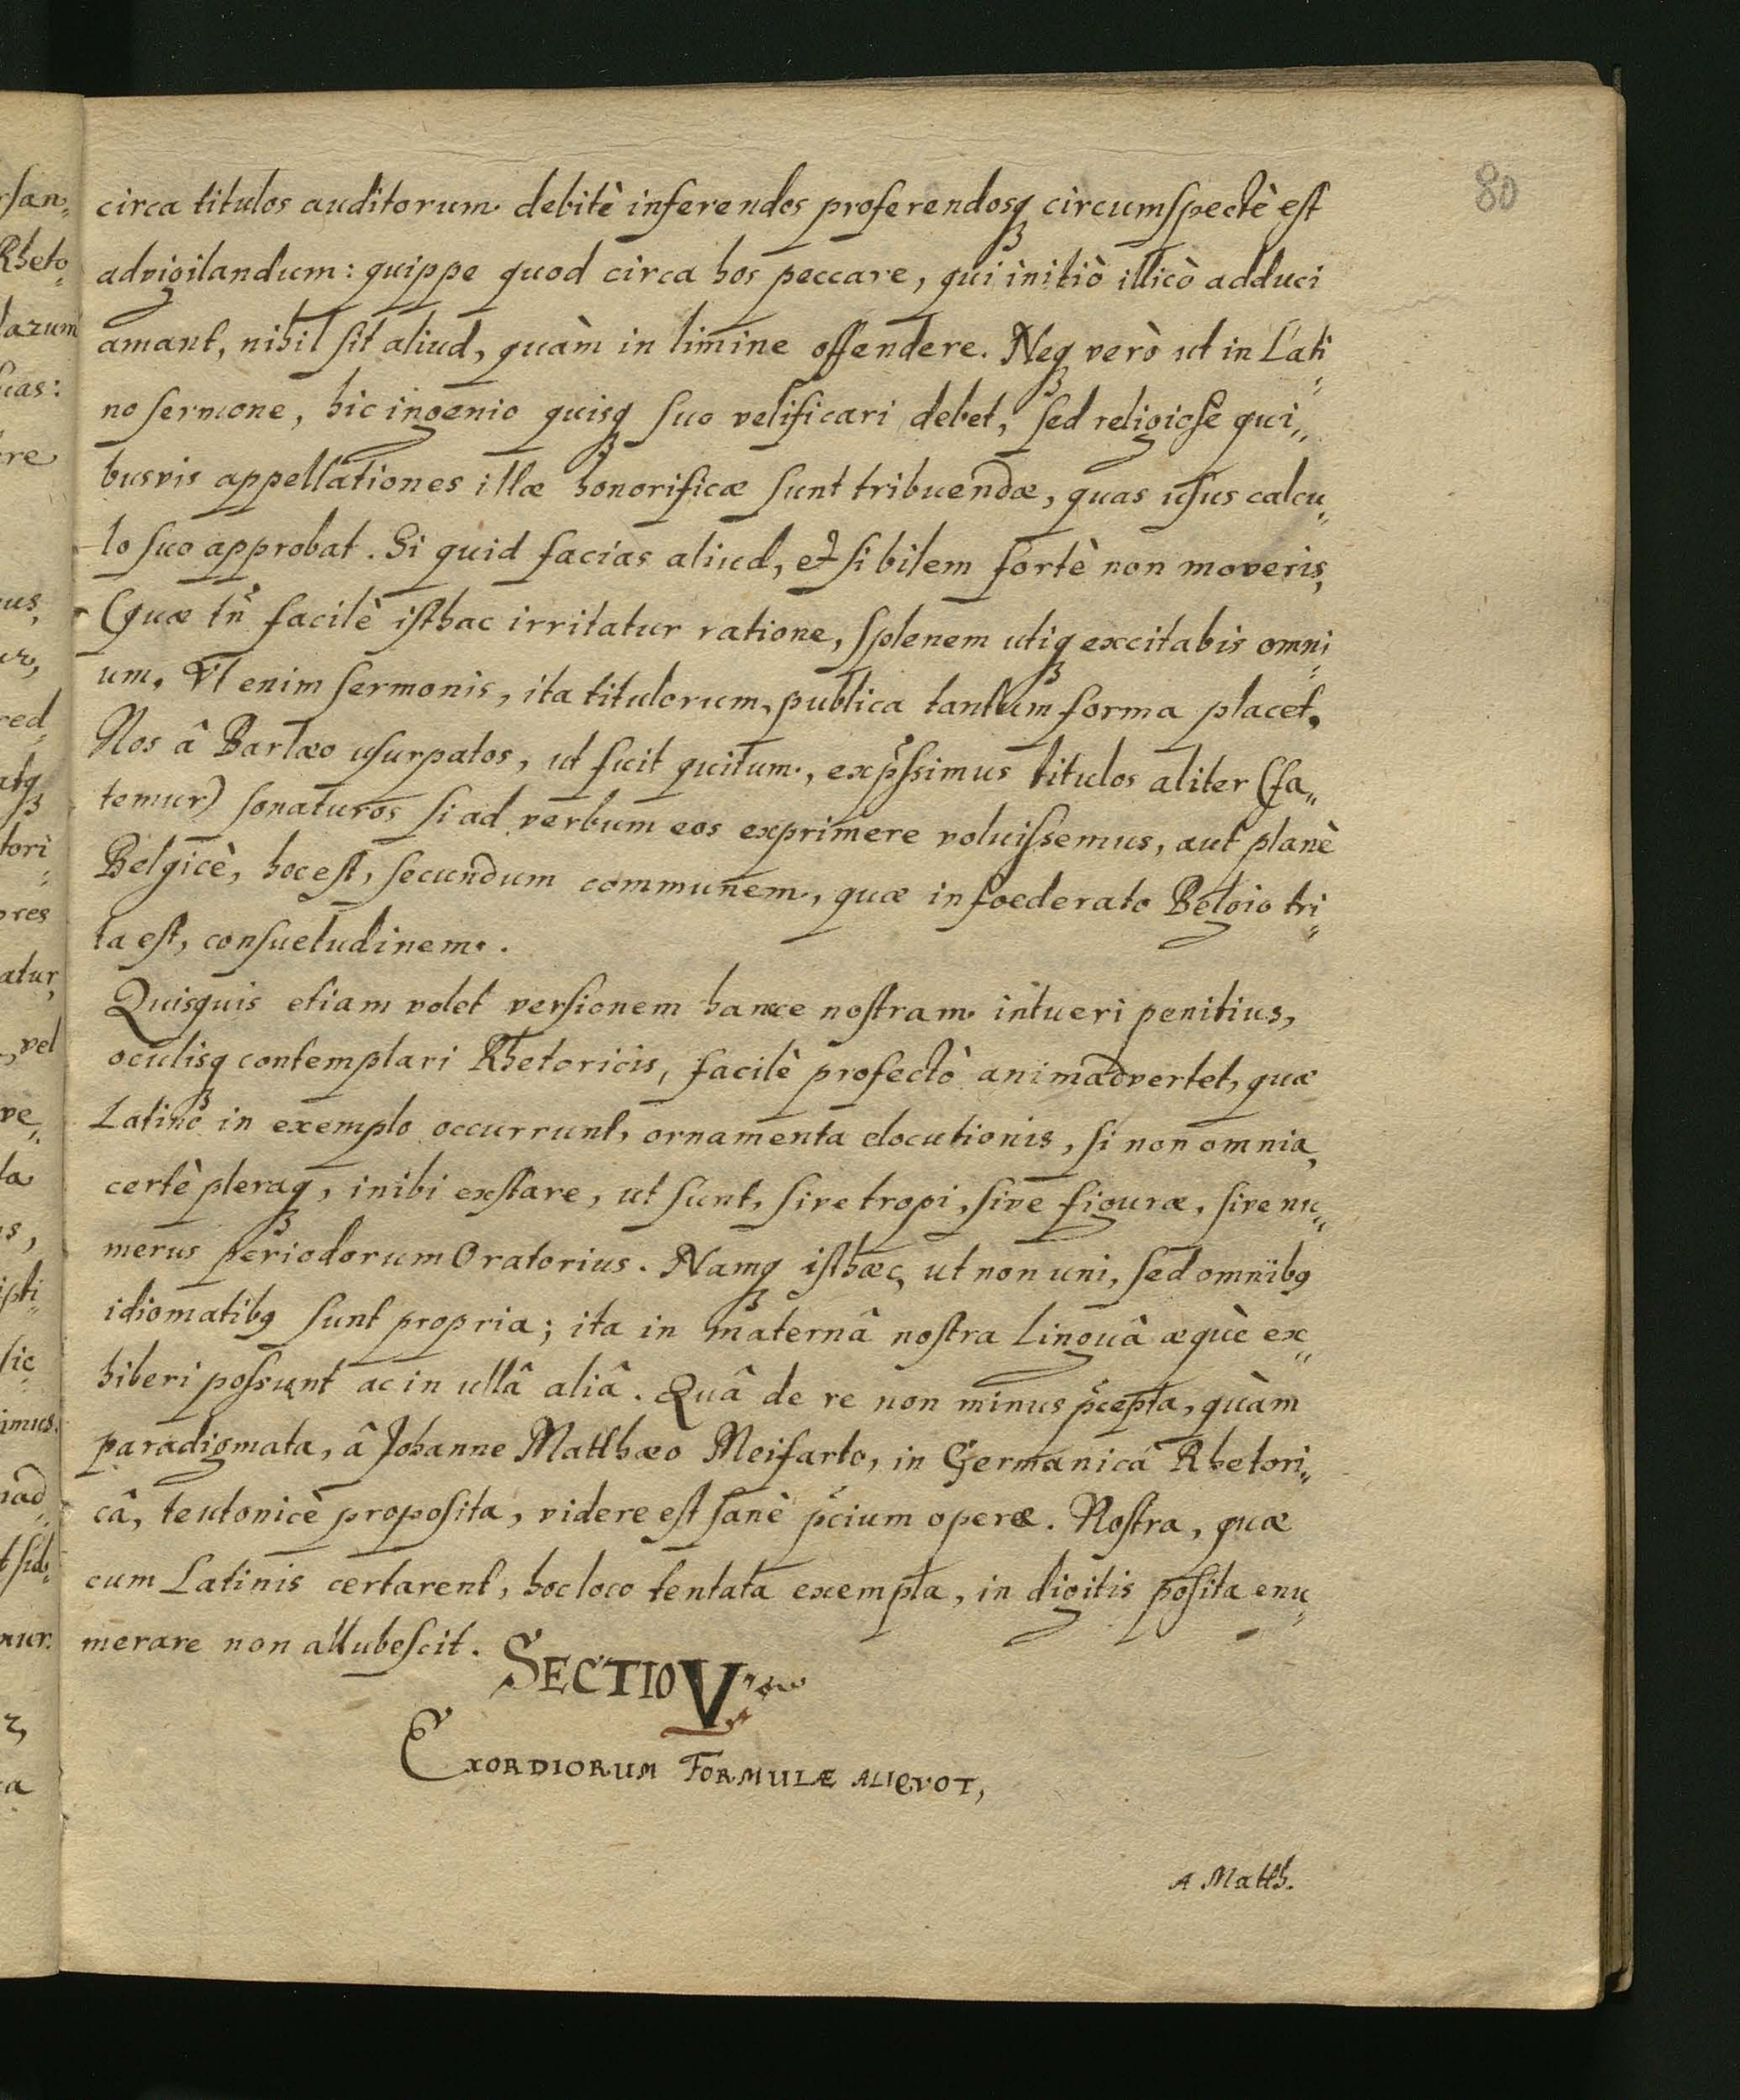 80
circa titulos auditorum debitè inferendos proferendosq; circumspectè est
advigilandum: quippe quod circa hos peccare, qui initiò illicò adduci
amant, nihil sit aliud, quàm in limine offendere. Neq; verò ut in Lati„
no sermone, hic ingenio quisq; suo velificari debet, sed religiosè qui„
busvis appellationes illæ honorificæ sunt tribuendæ, quas usus calcu„
lo suo approbat. Si quid facias aliud, et si bilem fortè non moveris,
(quæ tn̄ facilè isthac irritatur ratione, splenem utiq; excitabis omni„
um. Vt enim sermonis, ita titulorum, publica tantum forma placet.
Nos â Barlæo usurpatos, ut fuit quitum, exp̃ssimus titulos aliter (fa„
temur) sonaturos si ad verbum eos exprimere voluissemus, aut planè
Belgicè, hoc est, secundum communem, quæ in foederato Belgio tri„
ta est, consuetudinem.
Quisquis etiam volet versionem hance nostram intueri penitius,
oculisq; contemplari Rhetoricis, facilè profectò animadvertet, quæ
Latinô in exemplo occurrunt, ornamenta elocutionis, si non omnia,
certè pleraq;, inibi exstare, ut sunt, sive tropi, sive figuræ, sive nu„
merus periodorum Oratorius. Namq; isthæc, ut non uni, sed omnibq
idiomatibq sunt propria; ita in maternâ nostra linguâ æquè ex„
hiberi possunt ac in ullâ aliâ. Quâ de re non minus p̃cepta, quàm
paradigmata, â Johanne Matthæo Meifarto, in Germanicâ Rhetori„
câ, teutonicè proposita, videre est sanè p̃cium operæ. Nostra, quæ
cum Latinis certarent, hoc loco tentata exempla, in digitis posita enu„
merare non allubescit.
SECTIO V.
EXORDIORUM FORMULÆ ALIQVOT,
A Matth.